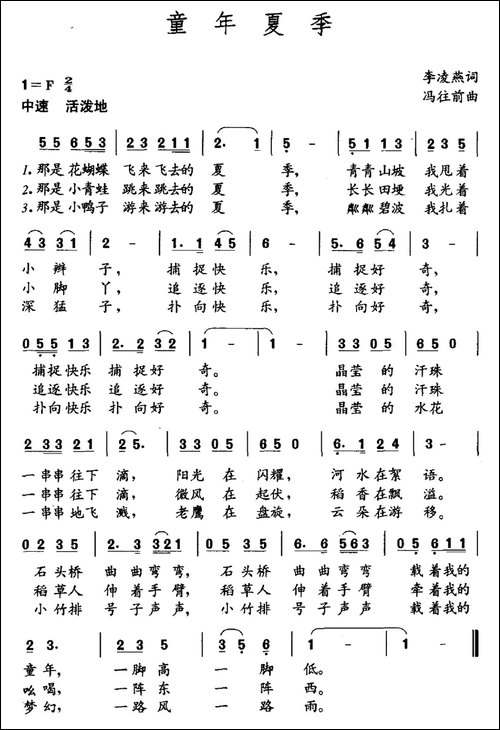 童年夏季
1=F 2/4
李凌燕词
中速 活泼地
冯往前曲
5 5 6 5 3 | 2 3 2 1 1 | 2. 1 | 5 - | 5 1 1 3 | 2 3 5
1.那是花蝴蝶 飞来飞去的 夏 季, 青青山坡 我甩着
2.那是小青蛙 跳来跳去的 夏 季, 长长田埂 我光着
3.那是小鸭子 游来游去的 夏 季, 粼粼碧波 我扎着
4 3 3 1 | 2 - | 1. 1 4 5 | 6 - | 5. 6 5 4 | 3 -
小辫子, 捕捉快乐, 捕捉好奇,
小脚丫, 追逐快乐, 追逐好奇,
深猛子, 扑向快乐, 扑向好奇,
0 5 5 1 3 | 2. 2 3 2 | 1 - | 1 - | 3 3 0 5 | 6 5 0
捕捉快乐 捕捉好奇。 晶莹的汗珠
追逐快乐 追逐好奇。 晶莹的汗珠
扑向快乐 扑向好奇。 晶莹的水花
2 3 3 2 1 | 2 5. | 3 3 0 5 | 6 5 0 | 6. 1 2 4 | 3 -
一串串往下滴, 阳光在闪耀, 河水在絮语。
一串串往下滴, 微风在起伏, 稻香在飘溢。
一串串地飞溅, 老鹰在盘旋, 云朵在游移。
0 2 3 5 | 2. 3 3 2 1 | 0 2 3 5 | 2. 3 5 6 3 | 0 5 6 1 1
石头桥 曲曲弯弯, 石头桥 曲曲弯弯 载着我的
稻草人 伸着手臂, 稻草人 伸着手臂 牵着我的
小竹排 号子声声, 小竹排 号子声声 载着我的
2 3. | 2 3 5 | 3 5 6 | 1 - | 1 - ‖
童年, 一脚高 一脚低。
吆喝, 一阵东 一阵西。
梦幻, 一路风 一路雨。